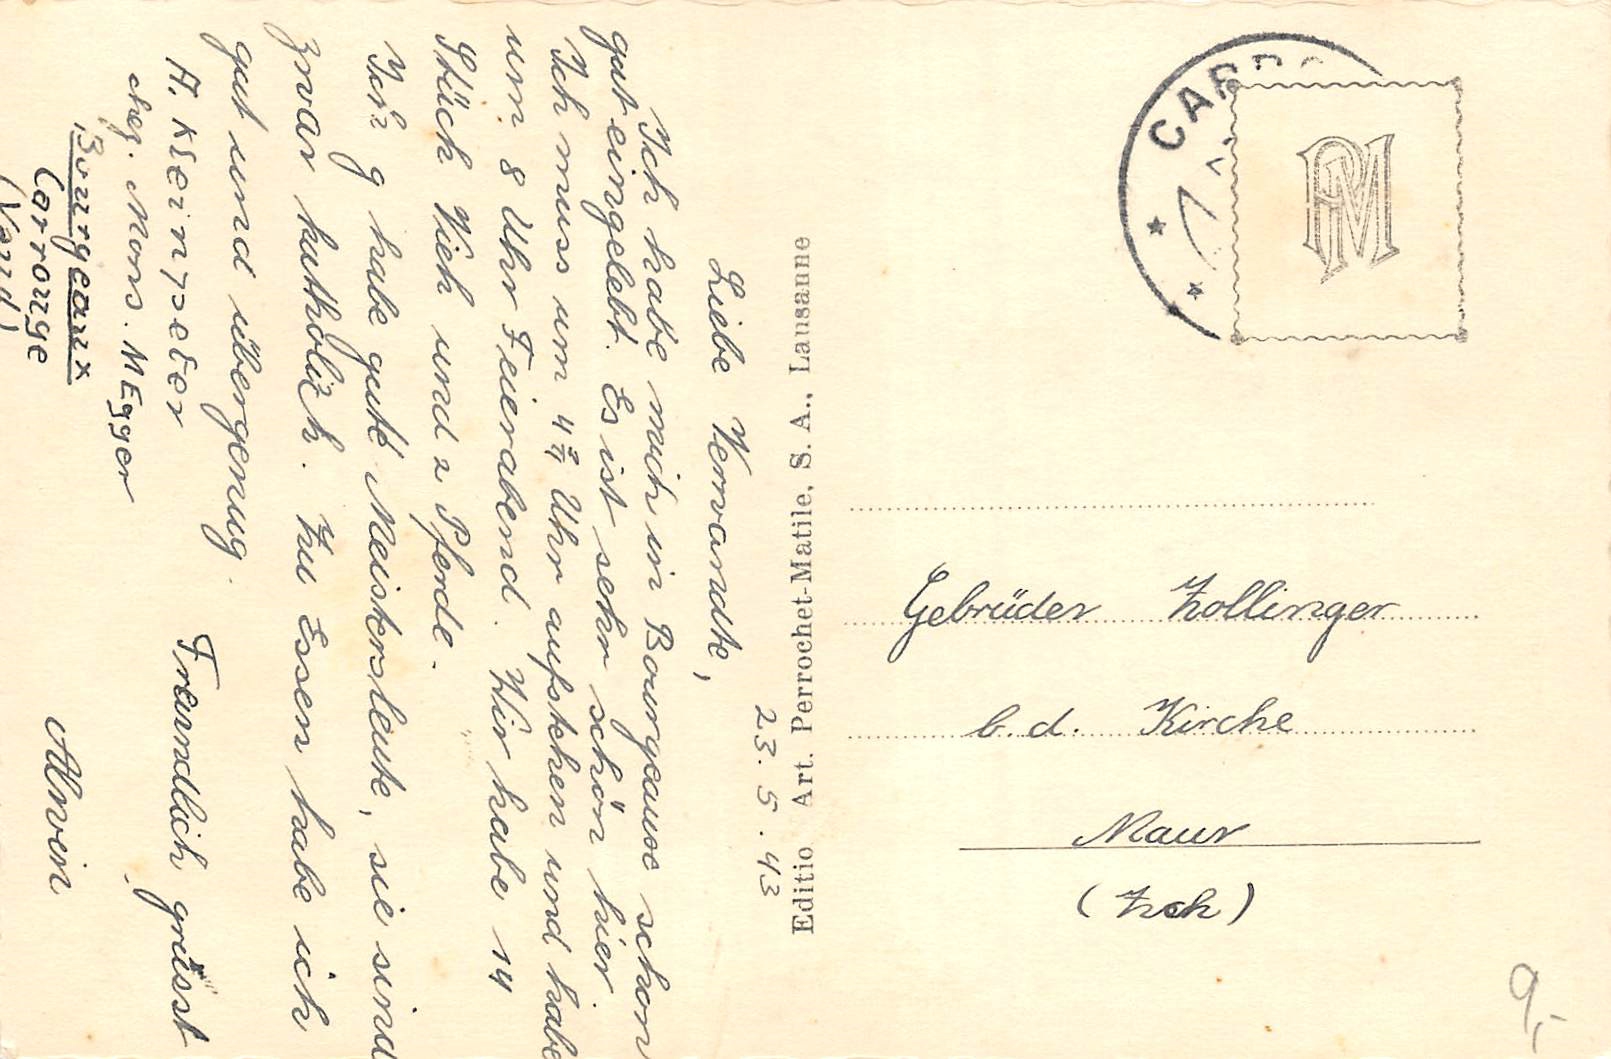 23. 5. 43
Liebe Verwandte,
Ich habe mich in Bourgeaux schon
gut eingelebt. Es ist sehr schön hier
Ich muss um 4 3/4 Uhr aufstehen und habe
um 8 Uhr Feierabend. Wir habe 14
Stück Vieh und 2 Pferde.
Ich g habe gute Meistersleute, sie sind
zwar katholich. Zu Essen habe ich
gut und übergenug.
Freundlich grüsst
Alwin
A. Kleinpeter
chez. Mons. M Egger
Bourgeaux
Carrouge
(Vaud)
Editio Art. Perrochet-Matile, S. A., Lausanne
PM
Gebrüder Zollinger
b. d. Kirche
Maur
(Zch)
9.-